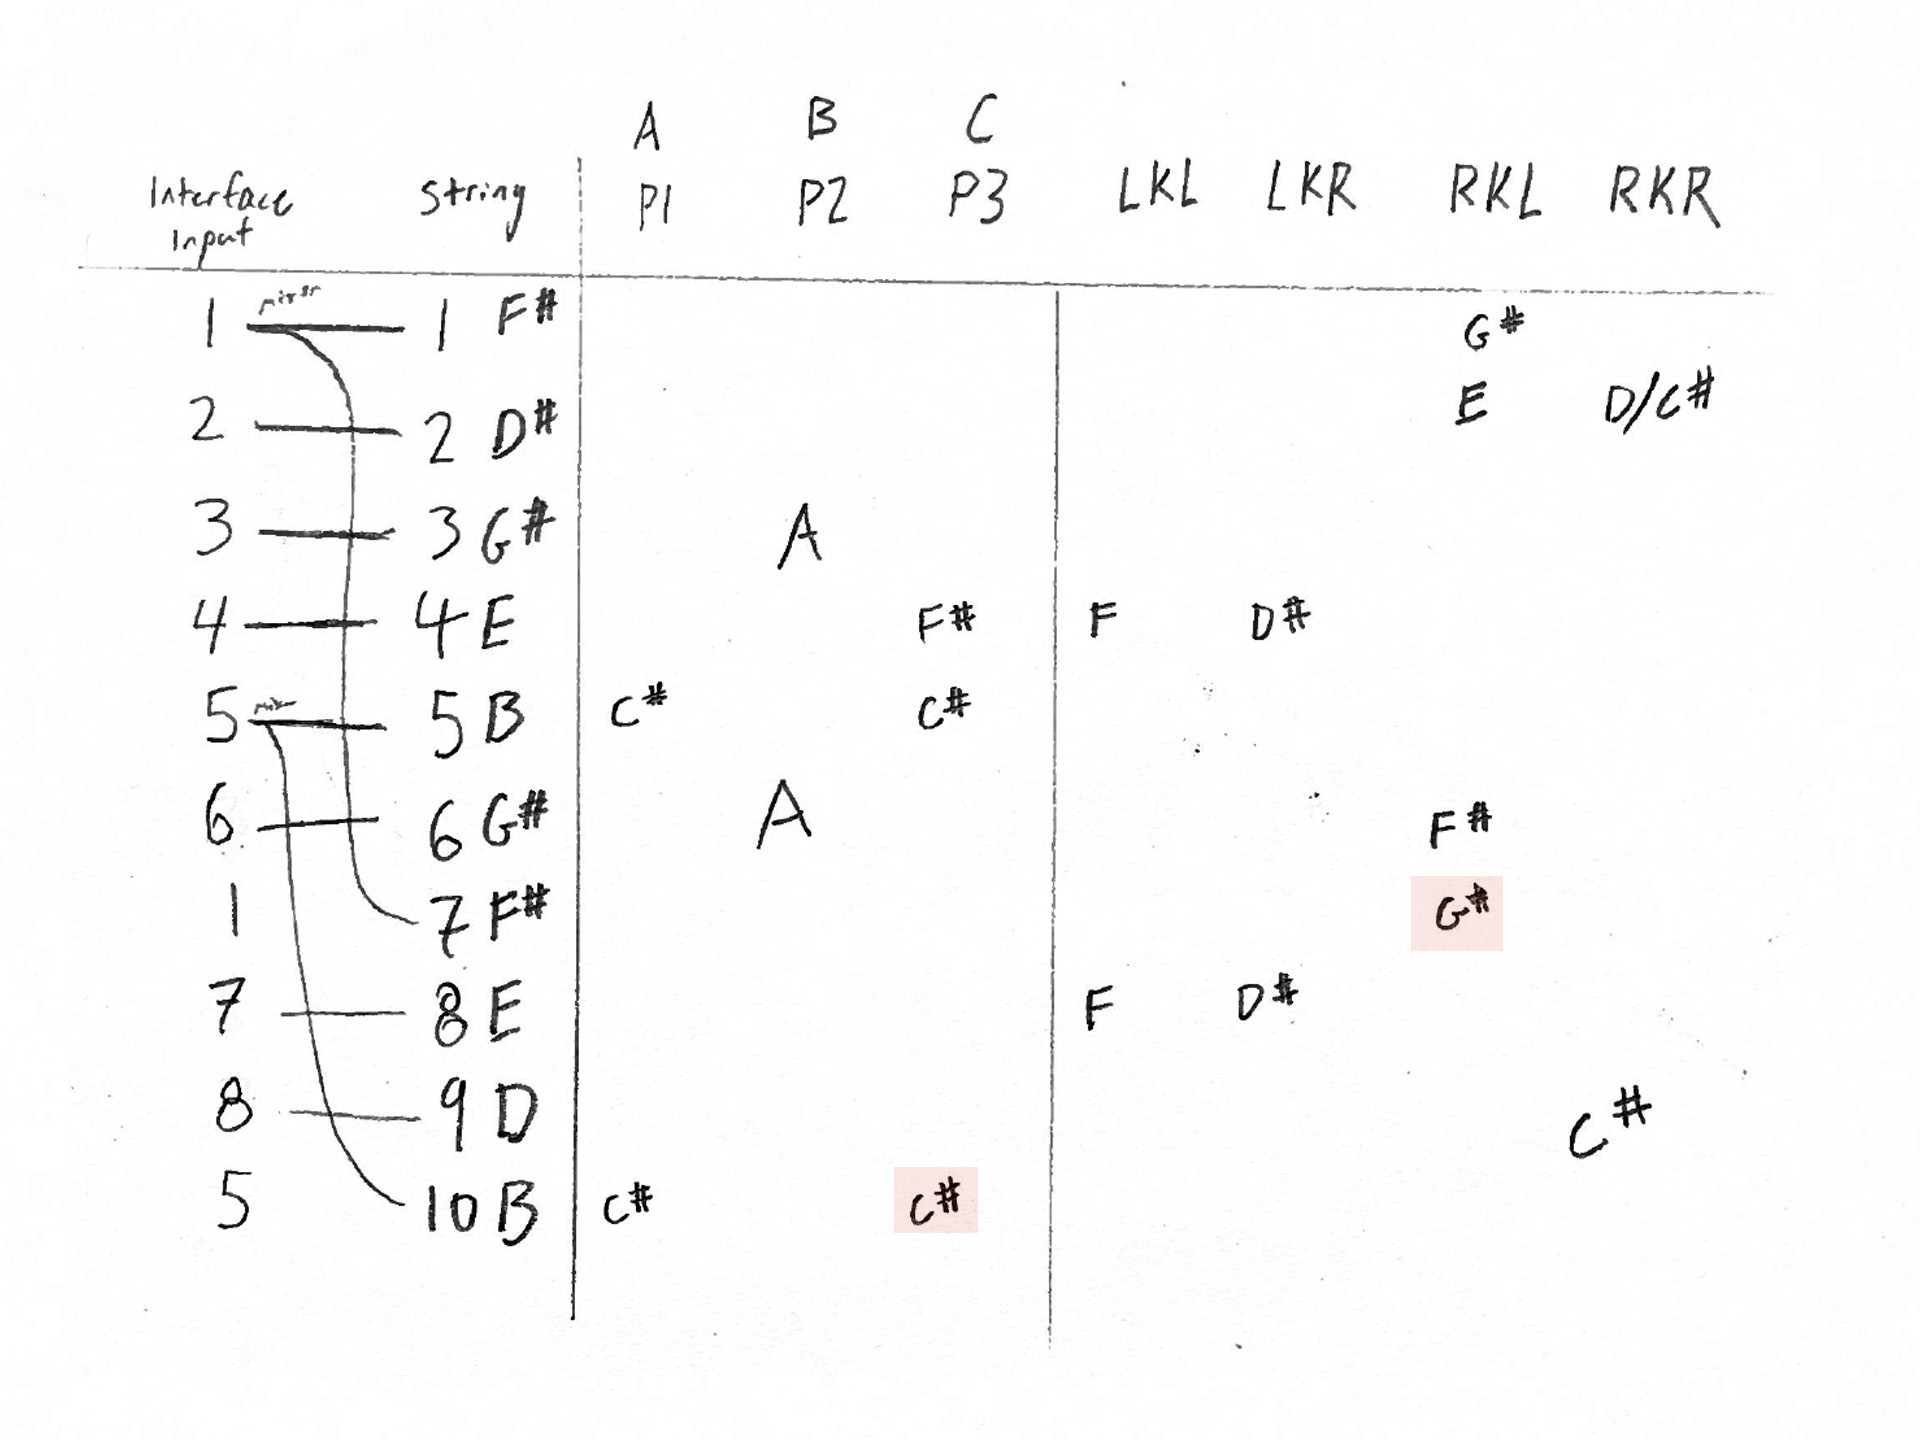 A B C
Interface Input String P1 P2 P3 LKL LKR RKL RKR
1 mirror 1 F# G#
2 2 D# E D/C#
3 3 G# A
4 4 E F# F D#
5 5 B C# C#
6 6 G# A F#
1 7 F# G#
7 8 E F D#
8 9 D C#
5 10 B C# C#